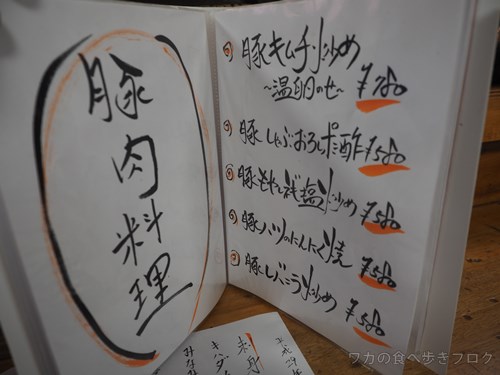 豚肉料理
豚キムチ炒め
~温玉のせ~ ¥780
豚しゃぶおろしポン酢 ¥580
豚もやしねぎ塩炒め ¥580
豚ハツのにんにく焼 ¥580
豚レバニラ炒め ¥580
刺身
キハダ
みなみ
ワカの食べ歩きブログ